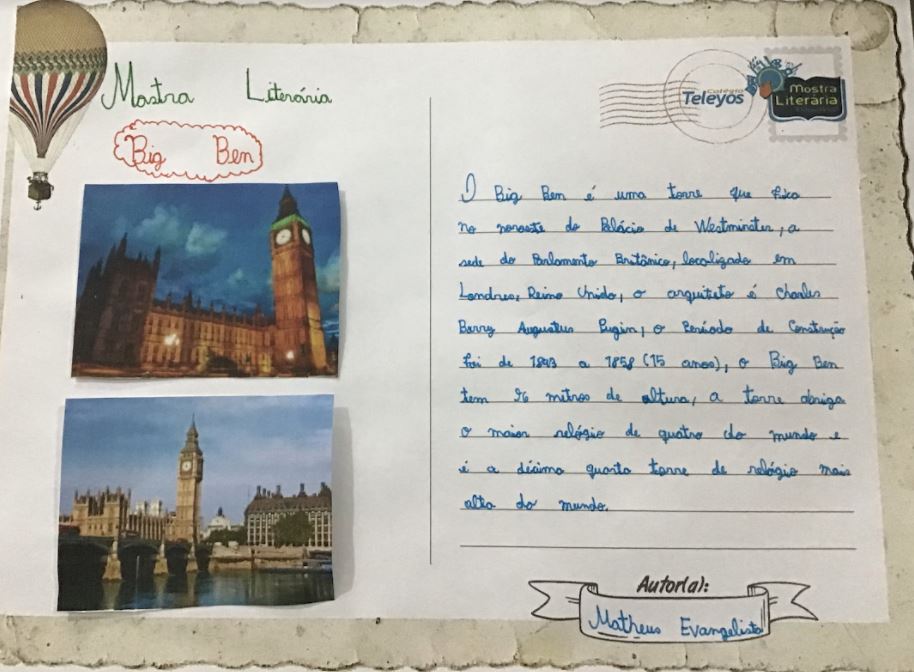 Mostra Literária
Big Ben
Colégio
Teleyos
Mostra
Literária
O Big Ben é uma torre que fica
no noroeste do Palácio de Westminster, a
sede do Parlamento Britânico, localizado em
Londres, Reino Unido, o arquiteto é Charles
Barry Augustus Pugin, o Período de Construção
foi de 1843 a 1858 (15 anos), o Big Ben
tem 96 metros de altura, a torre abriga
o maior relógio de quatro do mundo e
é a décima quarta torre de relógio mais
alta do mundo.
Autor(a):
Matheus Evangelista